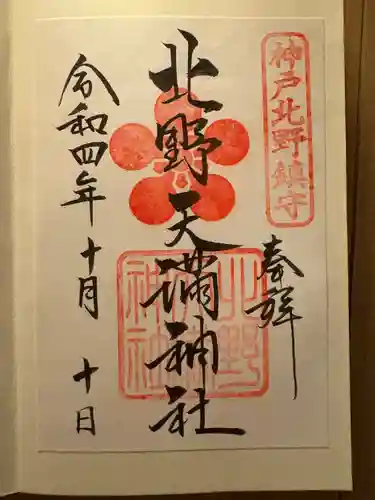 神戸北野鎮守
奉拝
北野天満神社
北野天満神社
令和四年十月十日